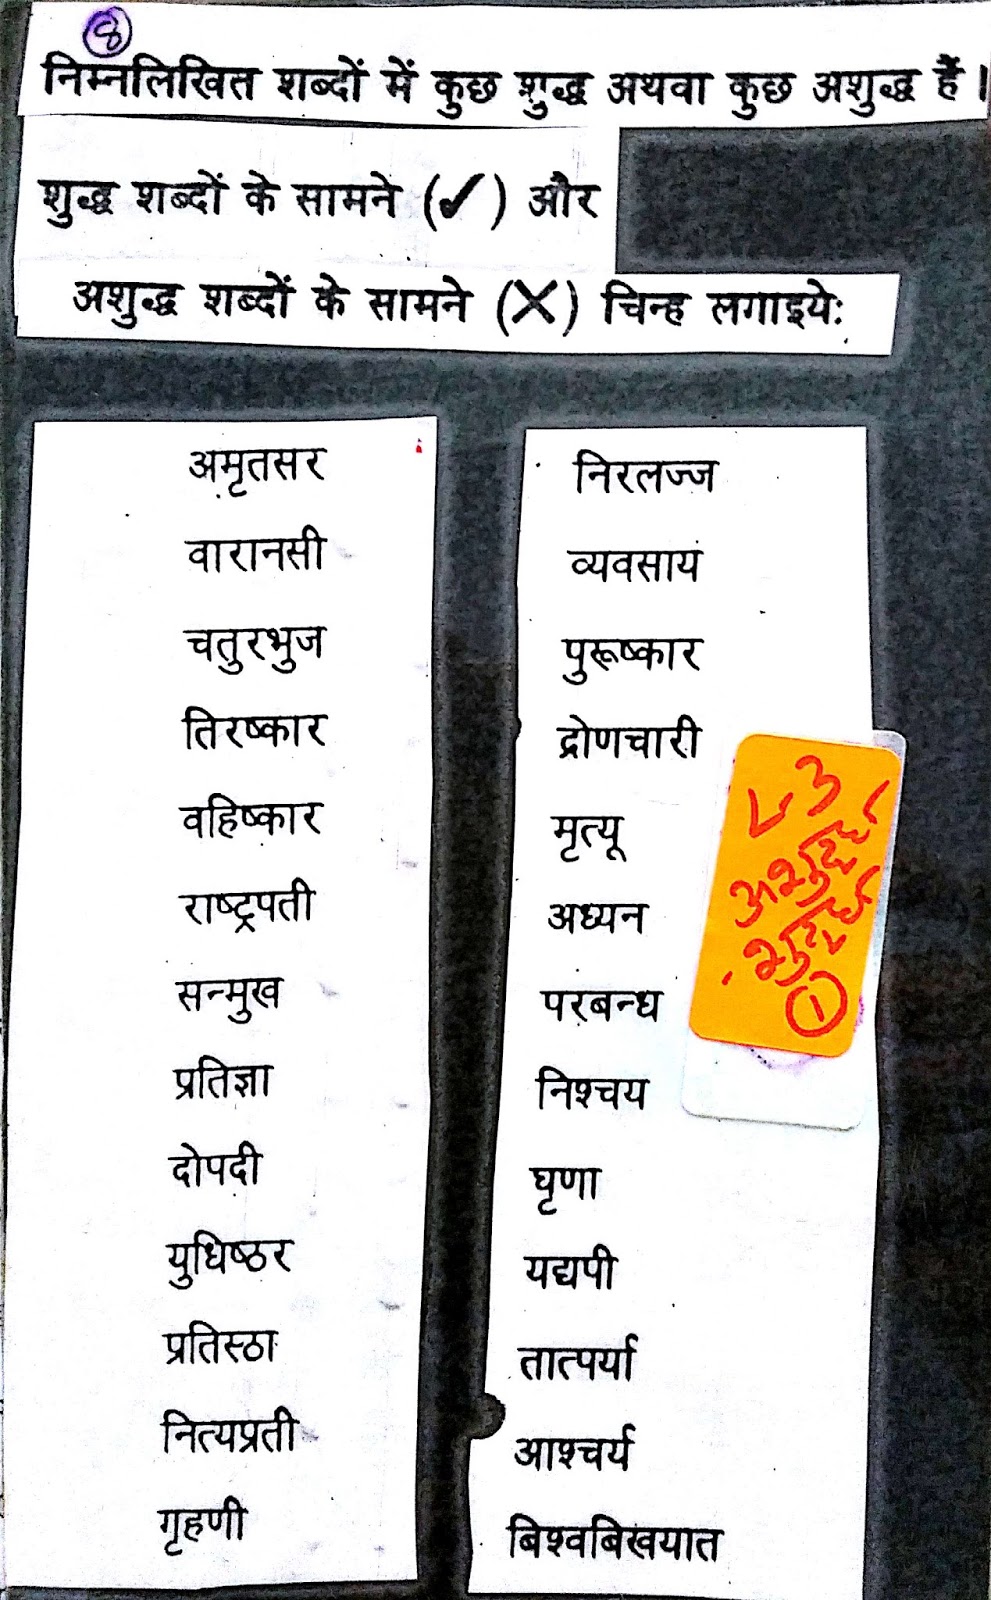 8
निम्नलिखित शब्दों में कुछ शुद्ध अथवा कुछ अशुद्ध हैं ।
शुद्ध शब्दों के सामने (✓) और
अशुद्ध शब्दों के सामने (X) चिन्ह लगाइये:
अमृतसर
वारानसी
चतुरभुज
तिरष्कार
वहिष्कार
राष्ट्रपती
सन्मुख
प्रतिज्ञा
दोपदी
युधिष्ठर
प्रतिस्ठा
नित्यप्रती
गृहणी
निरलज्ज
व्यवसाय
पुरूष्कार
द्रोणचारी
मृत्यू
अध्यन
परबन्ध
निश्चय
घृणा
यद्यपी
तात्पर्या
आश्चर्य
बिश्वबिखयात
L3
अशुद्ध
शुद्ध
1